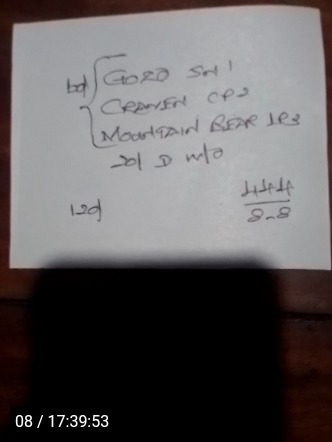 GOZO SN 1
CRAVEN CP2
MOUNTAIN BEAR LR2
20/ D w/o
120/
444
8-8
08 / 17:39:53